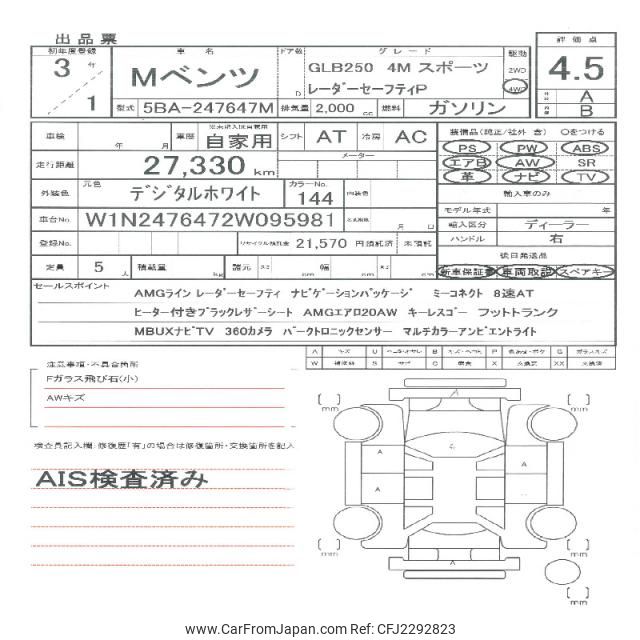 出品票
初年度登録 車名 ドア数 グレード 駆動 評価点
3年 / 1 Mベンツ D GLB250 4M スポーツ 2WD 4.5
レーダーセーフティP 4WD
型式 5BA-247647M 排気量 2,000 cc 燃料 ガソリン A
B
車検 年 月 車歴 自家用 シフト AT 冷房 AC 装備品(純正/社外 含) ○をつける
PS PW ABS
走行距離 27,330 km メーター エアB AW SR
革 ナビ TV
外装色 元色 デジタルホワイト カラーNo. 144 内装色 輸入車のみ
モデル年式 年
車台No. W1N2476472W095981 月 日 輸入区分 ディーラー
登録No. リサイクル預託金 21,570 円 預託済 未預託 ハンドル 右
後日発送品
定員 5 人 積載量 kg 諸元 長さ cm 幅 cm 高さ cm 新車保証書 車両取説 スペアキー
セールスポイント
AMGライン レーダーセーフティ ナビゲーションパッケージ ミーコネクト 8速AT
ヒーター付きブラックレザーシート AMGエアロ20AW キーレスゴー フットトランク
MBUXナビTV 360カメラ パークトロニックセンサー マルチカラーアンビエントライト
A キズ U B P G ガラスキズ
W S サビ C 腐食 X XX
注意事項・不具合箇所
Fガラス飛び石(小)
AWキズ
検査員記入欄:修復歴「有」の場合は修復箇所・交換箇所を記入
AIS検査済み
[ ] mm
[ ] mm
A
A
A
A
A
[ ] mm
[ ] mm
[ ] mm
www.CarFromJapan.com Ref: CFJ2292823